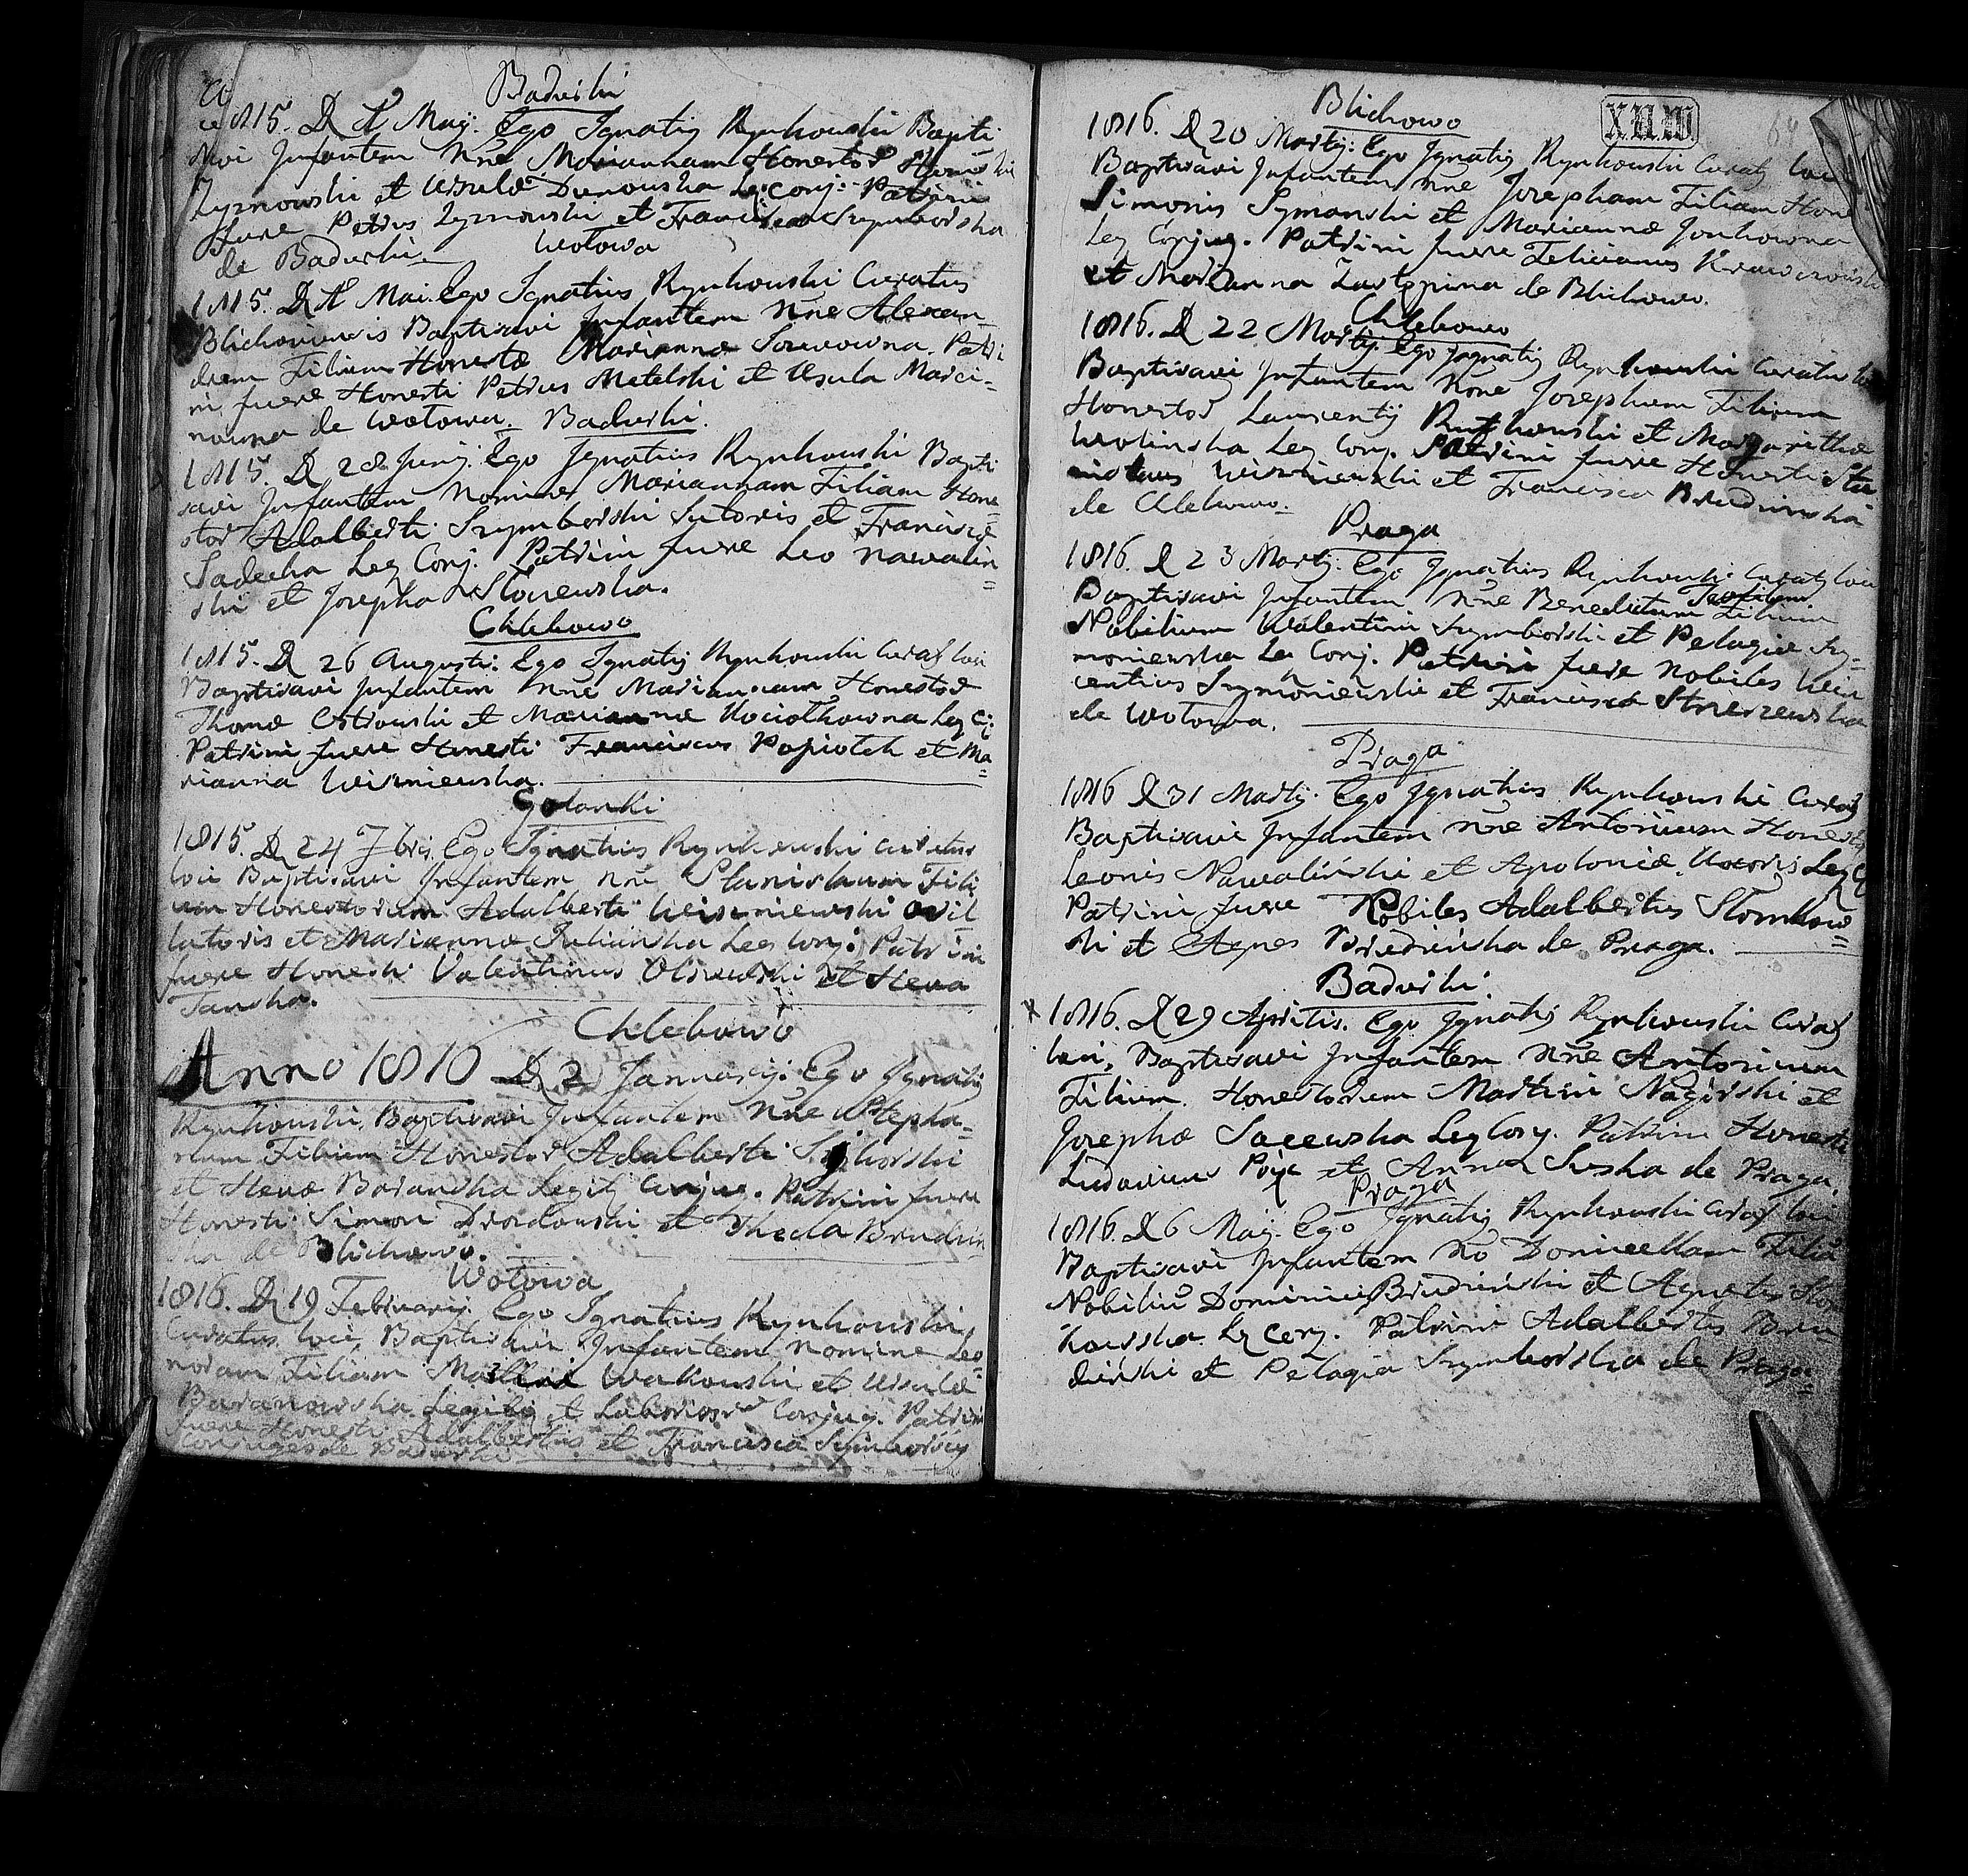 Badurki
1815. D Maij. Ego Ignatig Rynkowski Bapti
Infantem Nne Mariannam Honestor
Zyznowski et Ursula Dunowska Leg: Conj: Patrini
fuere Petrus Zyznowski et Francisca Szymborska
de Badurki.
Wotowa
1815. D Mai. Ego Ignatius Rynkowski Curatus
Blichoviensis Baptisavi Infantem Nne Alexan
drum Filium Honestæ Mariannæ Patri
ni fuere Honesti Petrus Metelski et Usula Marci=
nowna de Wotowa.
Badurki.
1815. D 28 Junij. Ego Ignatius Rynkowski Bapti
savi Infantem Nomine Mariannam Filiam Hone=
stor Adalberti Szymborski Sutoris et Franciscæ
Sadecka Leg Conj. Patrini fuere Leo Nawalin=
ski et Josepha
Chlebowo
1815. D 26 Augusti: Ego Ignatij Rynkowski Curat loci
Baptisavi Infantem Nne Mariannam Honestor
Thomæ Ostrowski et Mariannæ Kociołkowna Leg C:
Patrini fuere Honesti Franciscus Popiołek et Ma=
rianna Wiszniewska.
Golanki
1815. D 24 7bris. Ego Ignatius Rynkowski Curatus
loci Baptisavi Infantem Nne Stanislaum Fili
um Honestorum Adalberti Weiszniewski Ovil
latoris et Mariannæ Julianska Leg Conj: Patrini
fuere Honesti Valentinus Olszewski et Heva
Janska.
Chlebowo
Anno 1816 D 2 Januarij. Ego Ignatig
Rynkowski, Baptisavi Infantem Nne Stepha=
num Filium Honestor Adalberti
et Hevæ Boranska Legitg Conjug. Patrini fuere
Honesti Simon Drozdowski et Thecla Brudzin
ska de Blichowo.
Wotowa
1816. D 19 Februarij. Ego Ignatius Rynkowski,
Curatus loci, Baptisavi Infantem Nomine Leo
noram Filiam Martini Wakowski et Ursulæ
Baranowska Legitig et Laboriosor Conjug. Patrini
fuere Honesti Adalbertus et Francisca Szimborscy
Conjuges de Badurki
Blichowo
XII.III
64
1816. D 20 Martij: Ego Ignatig Rynkowski Curatg loci
Baptisavi Infantem Nne Josepham Filiam Hone
Simonis Symanski et Mariannæ Jonkowna
Leg Conjug. Patrini fuere Felicianus
et Marianna de Blichowo.
Chlebowo
1816. D 22 Martij. Ego Ignatig Rynkowski Curatus
Baptisavi Infantem Nne Josephum Filium
Honestor Laurentij Rutkowski et Margarithæ
Wolinska Leg Conj. Patrini fuere Honesti Sta
nislaus Wiszniewski et Francisca Brudzinska
de Chlebowo.
Praga
1816. D 23 Martij. Ego Ignatius Rynkowski Curatg loci
Baptisavi Infantem Nne Benedictum Teofilem Filium
Nobilium Walentini Szymborski et Pelagiæ Szy=
moniewska Le Conj. Patrini fuere Nobiles Vin
centius Szymoniewski et Francisca
de Wotowa.
Praga
1816 D 31 Martij. Ego Ignatius Rynkowski Curatg
Baptisavi Infantem Nne Antonium Honestor
Leonis Nawaliński et Apoloniæ Uxoris Leg C
Patrini fuere Nobiles Adalbertus Słomkow=
ski et Agnes Brudzinska de Praga.
Badurki.
x 1816. D 29 Aprilis. Ego Ignatij Rynkowski Curat
loci, Baptisavi Infantem Nne Antonium
Filium Honestorum Martini Nagórski et
Josephæ Sacewska Leg Conj. Patrini Honesti
Ludovicus et Anna Suska de Praga.
Praga
1816. D 6 Maij. Ego Ignatij Rynkowski Curat loci
Baptisavi Infantem No Domicellam Filia
Nobiliū Dominici Brudziński et Agnetis Słom
kowska Lg Conj. Patrini Adalbertus Bru
dziński et Pelagia Szymborska de Praga.=